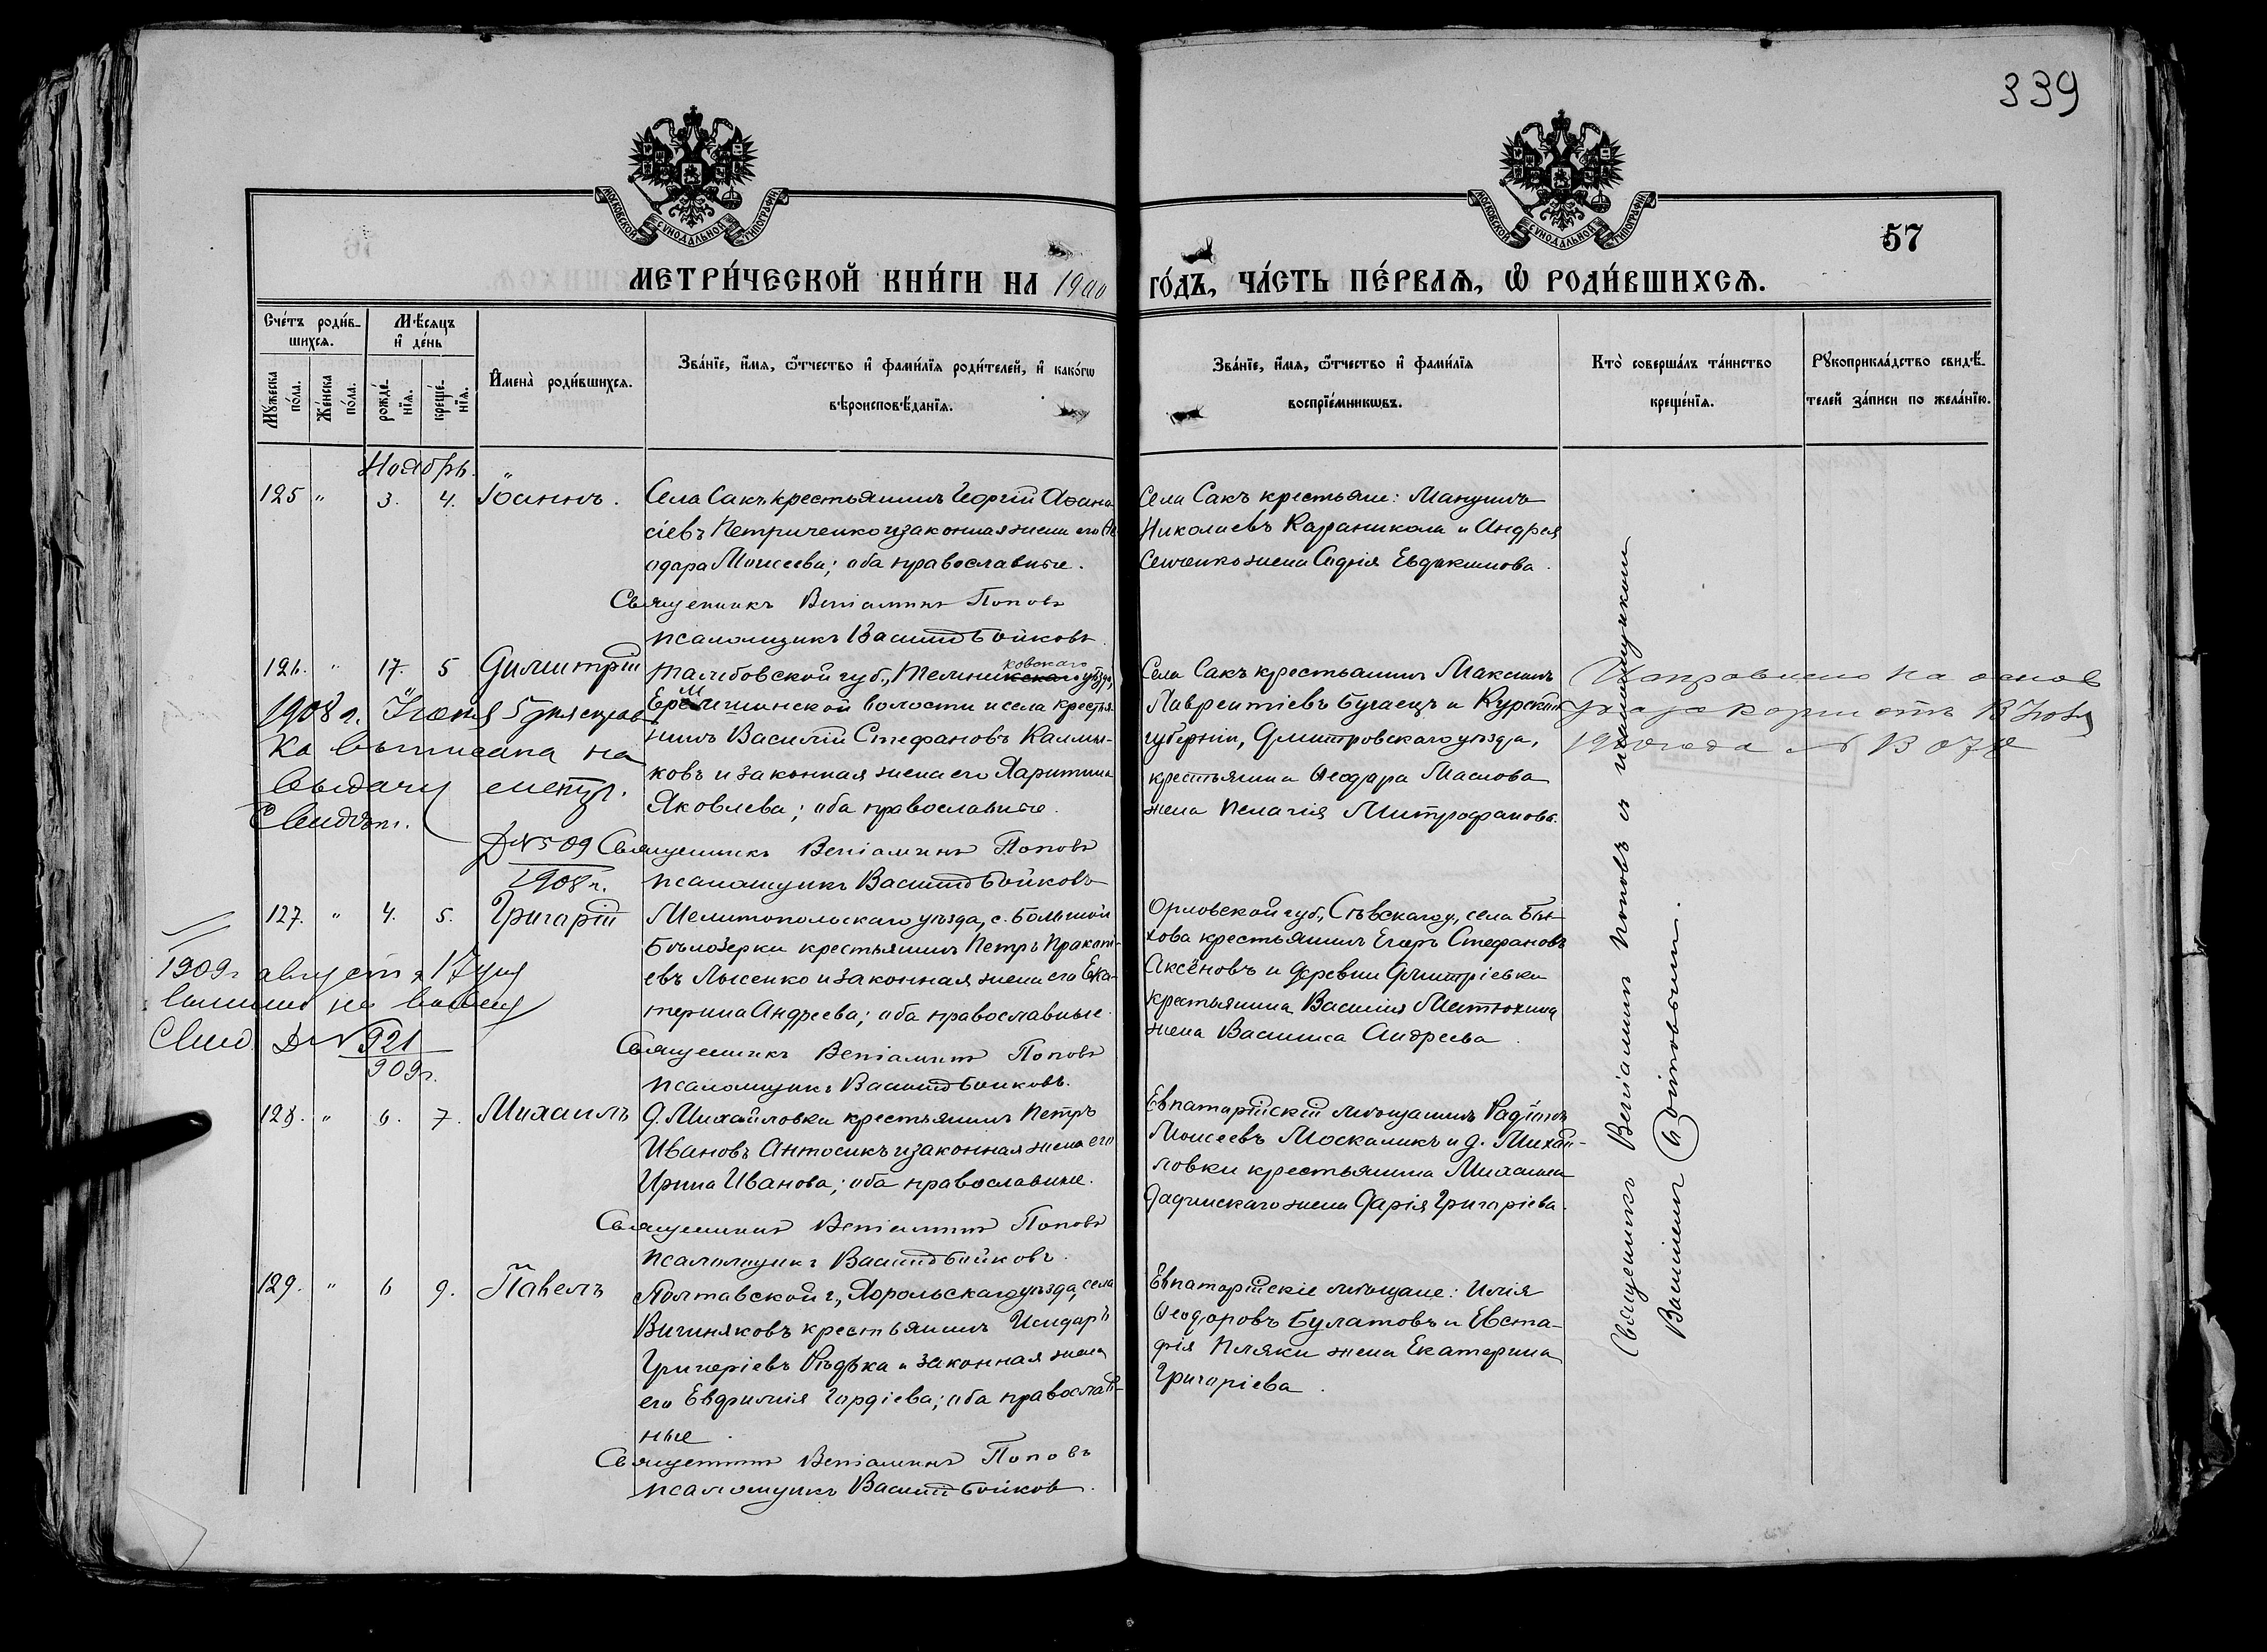 339
57
МОСКОВСКОЙ СѴНОДАЛЬНОЙ ТИПОГРАФІИ
МОСКОВСКОЙ СѴНОДАЛЬНОЙ ТИПОГРАФІИ
МЕТРИ́ЧЕСКОЙ КНИ́ГИ НА 1900 ГО́ДЪ, ЧА́СТЬ ПЕ́РВАѦ, Ѽ РОДИ́ВШИХСѦ.
Сче́тъ роди́в-
шихсѧ.
Мꙋ́жеска по́ла.
Же́нска по́ла.
Мѣ́сѧцъ и҆ де́нь
рожде́-нїѧ.
креще́-нїѧ.
И҆мена̀ роди́вшихсѧ.
Зва́нїе, и҆́мѧ, ѻ҆́тчество и҆ фами́лїѧ роди́телей, и҆ како́гѡ
вѣроисповѣ́данїѧ.
Зва́нїе, и҆́мѧ, ѻ҆́тчество и҆ фами́лїѧ
воспрїе́мникѡвъ.
Кто̀ соверша́лъ та́инство
креще́нїѧ.
Рꙋкоприкла́дство свидѣ́-
телей за́писи по жела́нїю.
Ноябрь.
125 " 3. 4. Іоаннъ.
Села Сакъ крестьянинъ Георгій Аѳана-
сіевъ Петриченко и законная жена его Ѳе
одора Моисеева; оба православные.
Священникъ Веніаминъ Поповъ
псаломщикъ Василій Бойковъ.
Села Сакъ крестьяне: Мануилъ
Николаевъ Караникола и Андрея
Сенченко жена Софія Евдокимова.
126. " 17. 5 Димитрій
Тамбовской губ., Темниковскаго уѣзда,
Еремшинской волости и села крестья-
нинъ Василій Стефановъ Калмы-
ковъ и законная жена его Харитина
Яковлева; оба православные.
Священникъ Веніаминъ Поповъ
псаломщикъ Василій Бойковъ
Села Сакъ крестьянинъ Максимъ
Лаврентіевъ Бугаецъ и Курской
губерніи, Дмитровскаго уѣзда,
крестьянина Ѳеодора Маслова
жена Пелагія Митрофанова.
1908 г. Іюня 5 дня справ
ка выписана на
выдачу метр.
Свидѣт.
Д№509
1908 г.
Исправлено на основ
1900 года №
127. " 4. 5. Григорій
Мелитопольскаго уѣзда, с. Большой
Бѣлозерки крестьянинъ Петръ Прокопі-
евъ Лысенко и законная жена его Ека-
терина Андреева; оба православные.
Священникъ Веніаминъ Поповъ
псаломщикъ Василій Бойковъ.
Орловской губ., Сѣвскаго у., села Бы-
хова крестьянинъ Егоръ Стефановъ
Аксёновъ и деревни Димитріевки
крестьянина Василія Митюхина
жена Василиса Андреева.
1909 г августа 17 дня
на
Свид. Д№921
909 г.
128. " 6. 7. Михаилъ
д. Михайловки крестьянинъ Петръ
Ивановъ Антосикъ и законная жена его
Ирина Иванова; оба православные.
Священникъ Веніаминъ Поповъ
псаломщикъ Василій Бойковъ.
Евпаторійскій мѣщанинъ Родіонъ
Моисеевъ Москаликъ и д. Михай-
ловки крестьянина Михаила
жена Дарія Григоріева.
129. " 6 9. Павелъ
Полтавской г., Хорольскаго уѣзда, села
Вишняковъ крестьянинъ Исидоръ
Григоріевъ Рѣдька и законная жена
его Евфимія Гордіева; оба православ-
ные.
Священникъ Веніаминъ Поповъ
псаломщикъ Василій Бойковъ.
Евпаторійскіе мѣщане: Илія
Ѳеодоровъ Булатовъ и Евста-
фія Пляки жена Екатерина
Григоріева.
Священникъ Веніаминъ Поповъ съ псаломщикомъ
Василіемъ Бойковымъ.